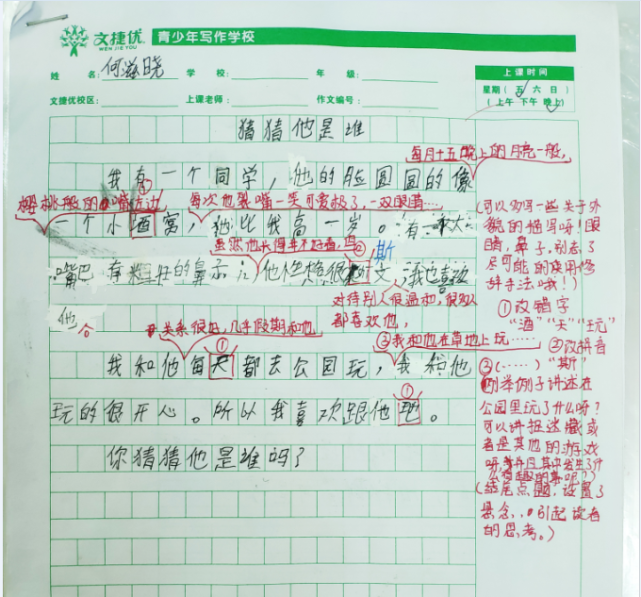 文捷优 青少年写作学校
WEN JIE YOU
姓 名: 何滋晓 学 校: 年 级: 上课时间
星期(五 六 日)
文捷优校区: 上课老师: 作文编号: (上午 下午 晚上)
猜猜他是谁
每月十五晚上的月亮一般,
我有一个同学,他的脸圆圆的像
樱桃般的嘴巴边 每次他裂嘴一笑可爱极了,一双眼睛……
个小酒窝,他比我高一岁。有一
虽然他长得并不好看,
斯
嘴巴 好的鼻 他性格很 文,我也喜欢
对待别人很温和,很多人
都喜欢他,
他。
关系很好,几乎假期和他 ③我和他在草地上玩……
① ①
我和他每天都去公园玩,我和他
玩的很开心。所以我喜欢跟他玩。
你猜猜他是谁吗?
(可以多写一些关于外
貌的描写哦!眼
睛,鼻子,别忘了
尽可能的使用修
辞手法哦!)
①改错字
“酒”“天”“玩”
②改拼音
“斯”
③(……)
举例子讲述在
公园里玩了什么呀?
可以讲捉迷藏或
者是其他的游戏
呀,并且其中发生了什
么有趣的事呢?)
(结尾点题,设置了
悬念,引起读者
的思考。)